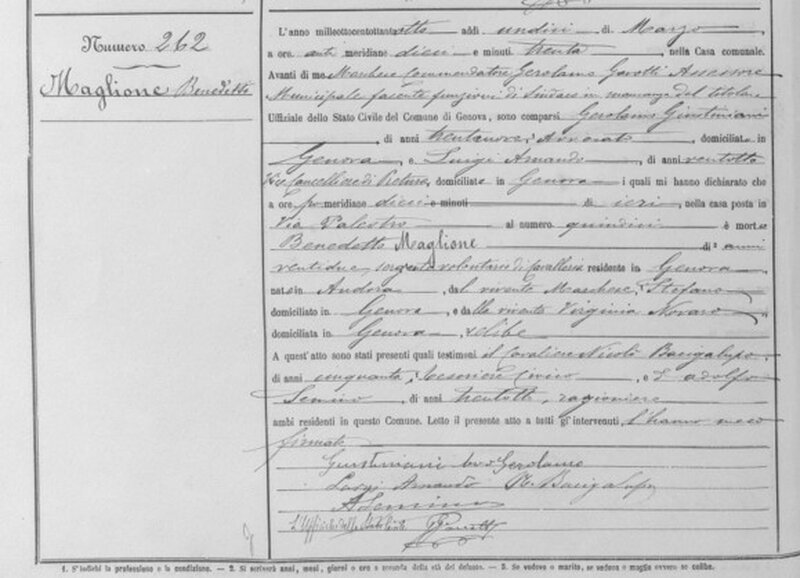 Numero 262
Maglione Benedetto
L'anno milleottocentottantotto addì undici di Marzo,
a ore anti meridiane dieci e minuti trenta, nella Casa comunale.
Avanti di me Marchese Commendatore Gerolamo Assessore
Municipale facente funzioni di Sindaco in mancanza del titolare
Uffiziale dello Stato Civile del Comune di Genova, sono comparsi Gerolamo Giustiniani
, di anni trentanove, Avvocato domiciliato in
Genova, e Luigi Amando, di anni ventotto
Vice Cancelliere di Pretura, domiciliato in Genova i quali mi hanno dichiarato che
a ore po meridiane dieci e minuti di ieri, nella casa posta in
Via Palestro al numero quindici è morto
Benedetto Maglione di anni
ventidue, sergente volontario di Cavalleria residente in Genova
nato in Andora, dal vivente Marchese Stefano
domiciliato in Genova, e dalla vivente Virginia Novaro
domiciliata in Genova, celibe
A quest'atto sono stati presenti quali testimoni il Cavaliere Nicolò Bacigalupo
di anni cinquanta, Tesoriere Civico, e Adolfo
Semino, di anni trentotto, ragioniere
ambi residenti in questo Comune. Letto il presente atto a tutti gl'intervenuti, l'hanno meco
firmato
Giustiniani Gerolamo
Luigi Amando N. Bacigalupo
A Semino
L'Ufficiale dello Stato Civile
1. S'indichi la professione o la condizione. — 2. Si scriverà anni, mesi, giorni o ore a seconda della età del defunto. — 3. Se vedovo o marito, se vedova o moglie ovvero se celibe.